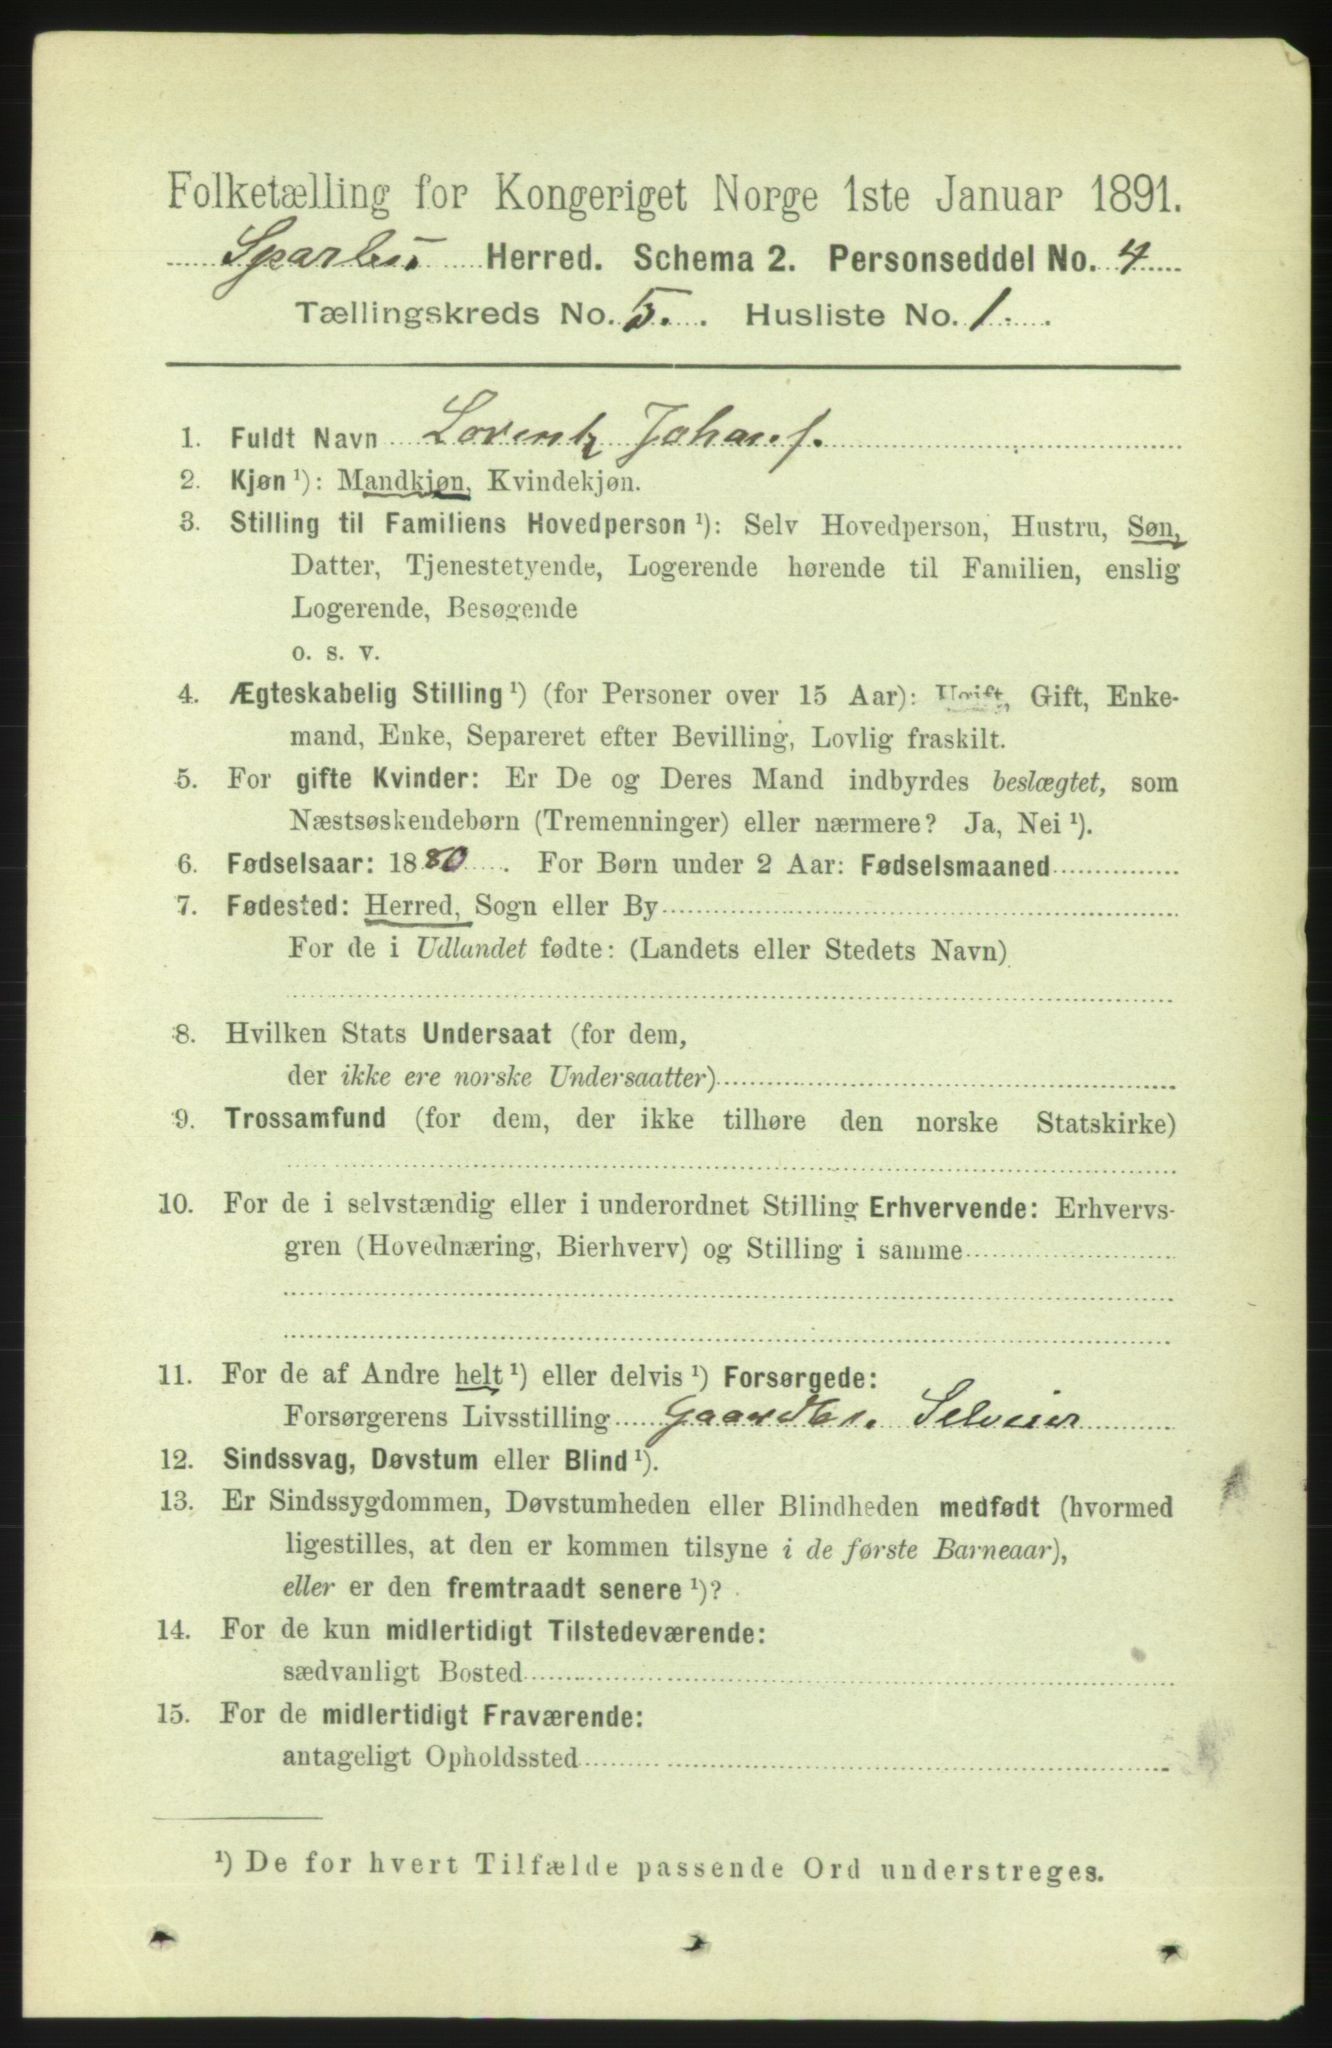 Folketælling for Kongeriget Norge 1ste Januar 1891.
Sparbu Herred. Schema 2. Personseddel No. 4
Tællingskreds No. 5. Husliste No. 1.
1. Fuldt Navn Lorentz Johans.
2. Kjøn ¹): Mandkjøn, Kvindekjøn.
3. Stilling til Familiens Hovedperson ¹): Selv Hovedperson, Hustru, Søn,
Datter, Tjenestetyende, Logerende hørende til Familien, enslig
Logerende, Besøgende
o. s. v.
4. Ægteskabelig Stilling ¹) (for Personer over 15 Aar): Ugift, Gift, Enke-
mand, Enke, Separeret efter Bevilling, Lovlig fraskilt.
5. For gifte Kvinder: Er De og Deres Mand indbyrdes beslægtet, som
Næstsøskendebørn (Tremenninger) eller nærmere? Ja, Nei ¹).
6. Fødselsaar: 1880. For Børn under 2 Aar: Fødselsmaaned
7. Fødested: Herred, Sogn eller By
For de i Udlandet fødte: (Landets eller Stedets Navn)
8. Hvilken Stats Undersaat (for dem,
der ikke ere norske Undersaatter)
9. Trossamfund (for dem, der ikke tilhøre den norske Statskirke)
10. For de i selvstændig eller i underordnet Stilling Erhvervende: Erhvervs-
gren (Hovednæring, Bierhverv) og Stilling i samme
11. For de af Andre helt ¹) eller delvis ¹) Forsørgede:
Forsørgerens Livsstilling Gaardbr. Selveier
12. Sindssvag, Døvstum eller Blind ¹).
13. Er Sindssygdommen, Døvstumheden eller Blindheden medfødt (hvormed
ligestilles, at den er kommen tilsyne i de første Barneaar),
eller er den fremtraadt senere ¹)?
14. For de kun midlertidigt Tilstedeværende:
sædvanligt Bosted
15. For de midlertidigt Fraværende:
antageligt Opholdssted
¹) De for hvert Tilfælde passende Ord understreges.